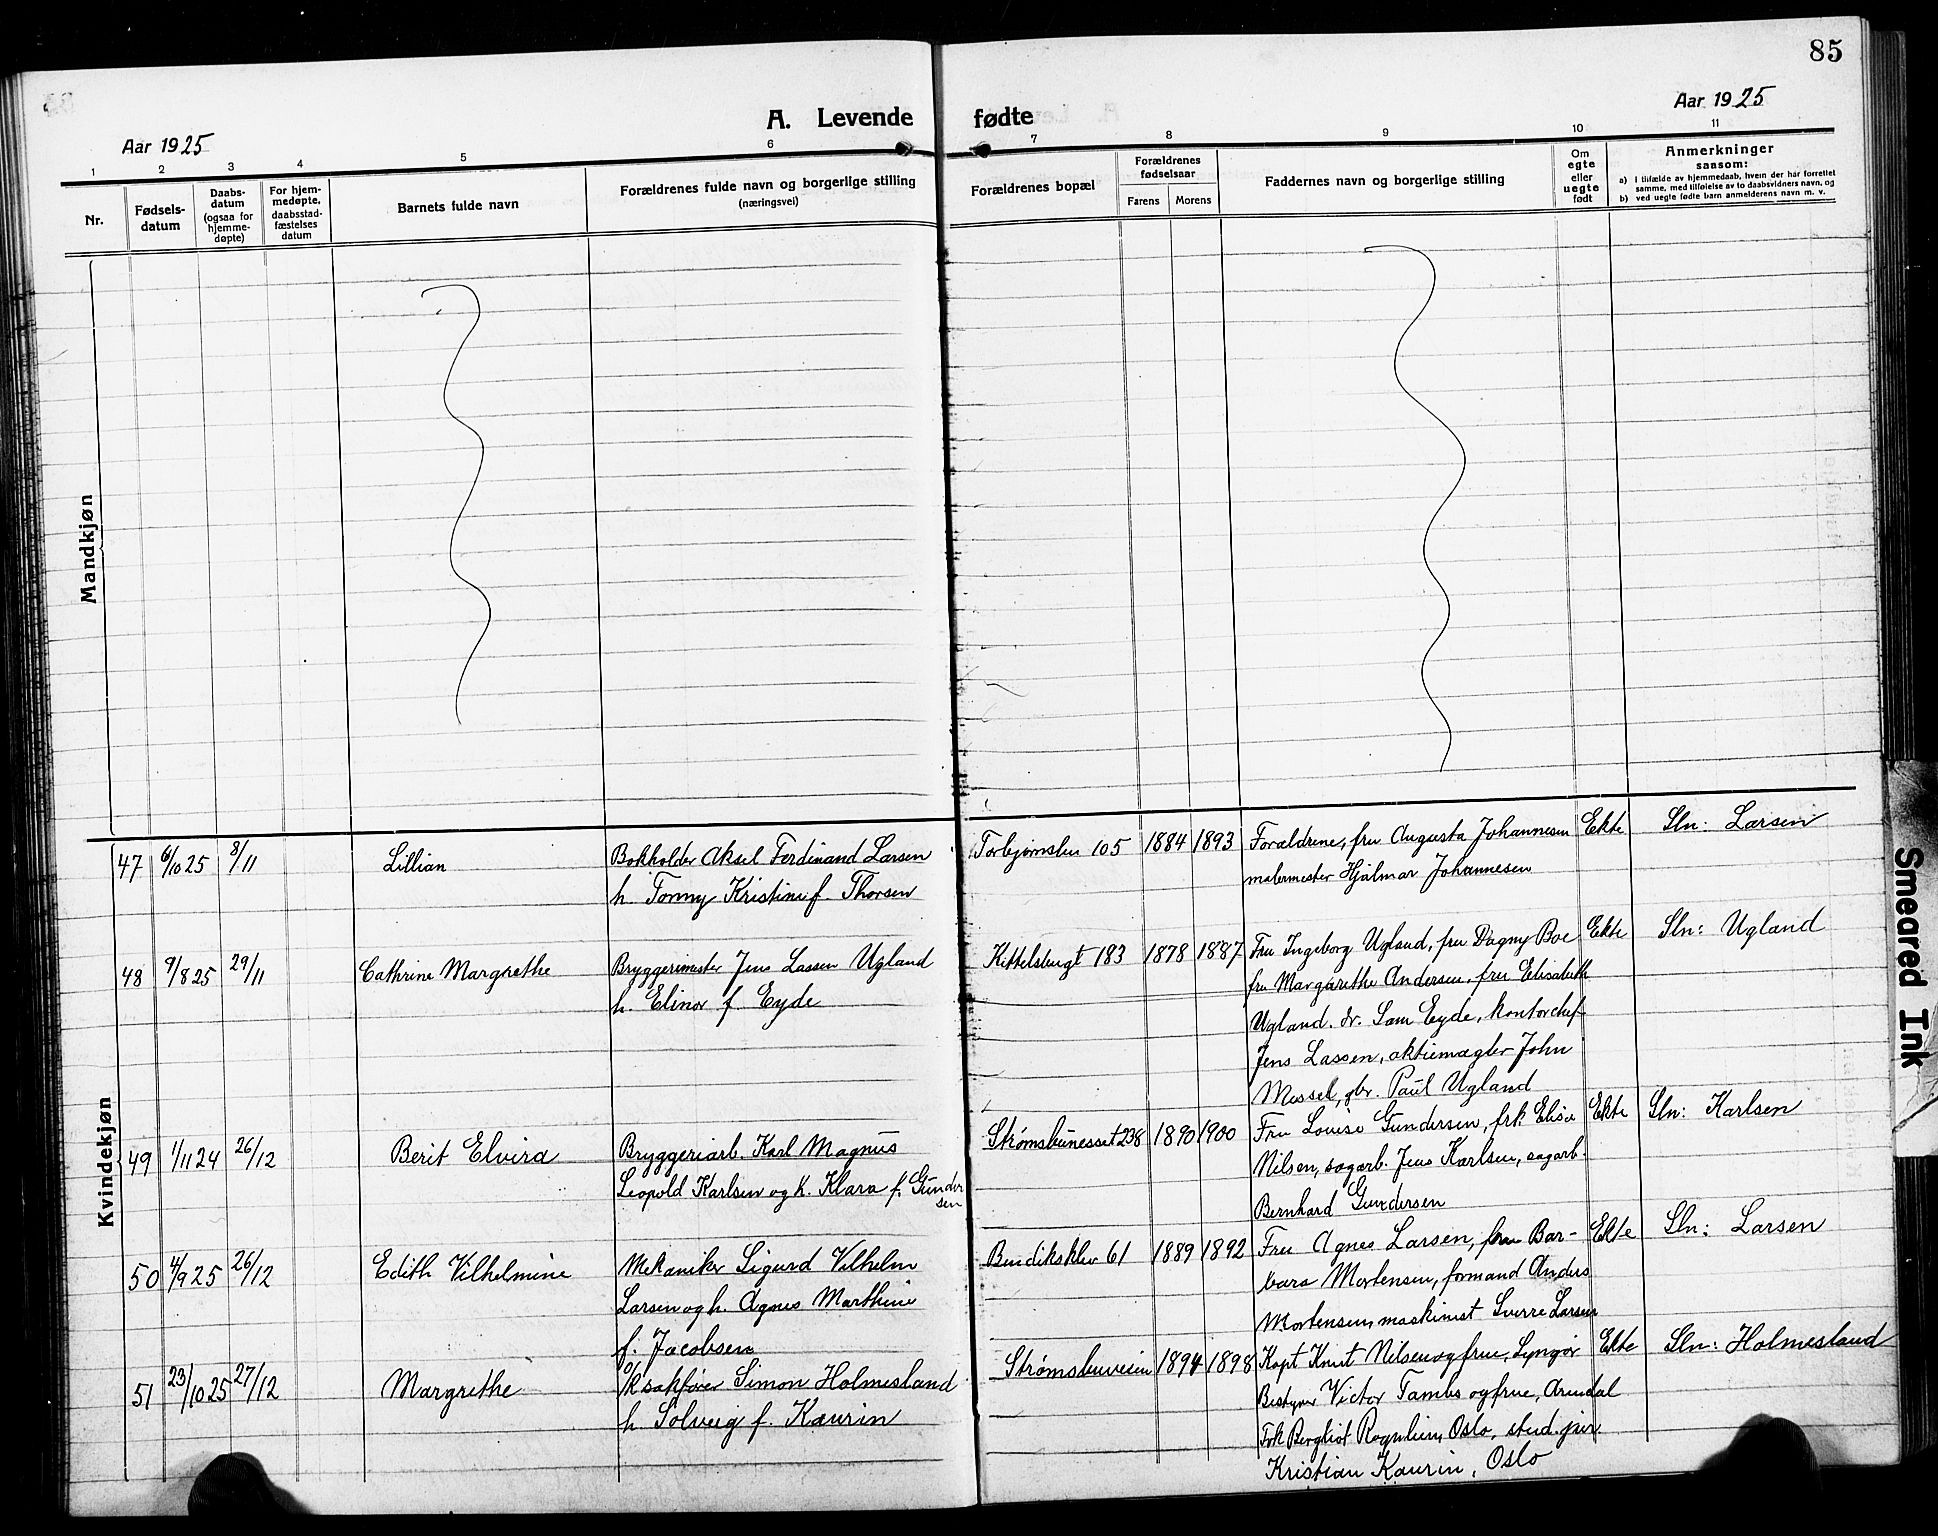 85
A. Levende fødte
Aar 1925
Aar 1925
1 2 3 4 5 6 7 8 9 10 11
Nr.
Fødsels-
datum
Daabs-
datum
(ogsaa for
hjemme-
døpte)
For hjem-
medøpte,
daabsstad-
fæstelses
datum
Barnets fulde navn
Forældrenes fulde navn og borgerlige stilling
(næringsvei)
Forældrenes bopæl
Forældrenes
fødselsaar
Farens Morens
Faddernes navn og borgerlige stilling
Om
egte
eller
uegte
født
Anmerkninger
sansom:
a) I tilfælde av hjemmedaab, hvem der har forrettet
samme, med tilføielse av to daabsvidners navn, og
b) ved uegte fødte barn anmelderens navn m. v.
Mandkjøn
Kvindekjøn
47 6/10 25 8/11 Lillian
Bokholder Aksel Ferdinand Larsen
h. Tonny Kristine f. Thorsen
Torbjørnsbu 105 1884 1893
Forældrene, fru Augusta Johannesen
malermester Hjalmar Johannesen
Ekte Sln: Larsen
48 9/8 25 29/11 Cathrine Margrethe
Bryggerimester Jens Lassen Ugland
h. Elinor f. Eyde
Kittelsbugt 183 1878 1887
Fru Ingeborg Ugland, fru Dagny Boe
fru Margarethe Andersen, fru Elisabeth
Ugland. dr. Sam Eyde, kontorchef
Jens Lassen, aktiemægler John
Messel, gbr. Paul Ugland
Ekte Sln: Ugland
49 1/11 24 26/12 Berit Elvira
Bryggeriarb. Karl Magnus
Leopold Karlsen og h. Klara f. Gunder
sen
Strømsbunesset 238 1890 1900
Fru Louise Gundersen, frk Elisa
Nilsen, sagarb. Jens Karlsen, sagarb.
Bernhard Gundersen
Ekte Sln: Karlsen
50 4/9 25 26/12 Edith Vilhelmine
Mekaniker Sigurd Vilhelm
Larsen og h. Agnes Marthine
f. Jacobsen
Bendiksklev 61 1889 1892
Fru Agnes Larsen, fru Bar-
bara Mortensen, formand Anders
Mortensen, maskinist Sverre Larsen
Ekte Sln: Larsen
51 23/10 25 27/12 Margrethe
O/r sakfører Simon Holmesland
h. Solveig f. Kaurin
Strømsbuveien 1894 1898
Kapt Knut Nilsen og frue, Lyngør
Bestyrer Victor Tambs og frue, Arendal
Frk Bergliot Rognlien, Oslo, stud. jur.
Kristian Kaurin, Oslo
Ekte Sln: Holmesland
Smeared Ink